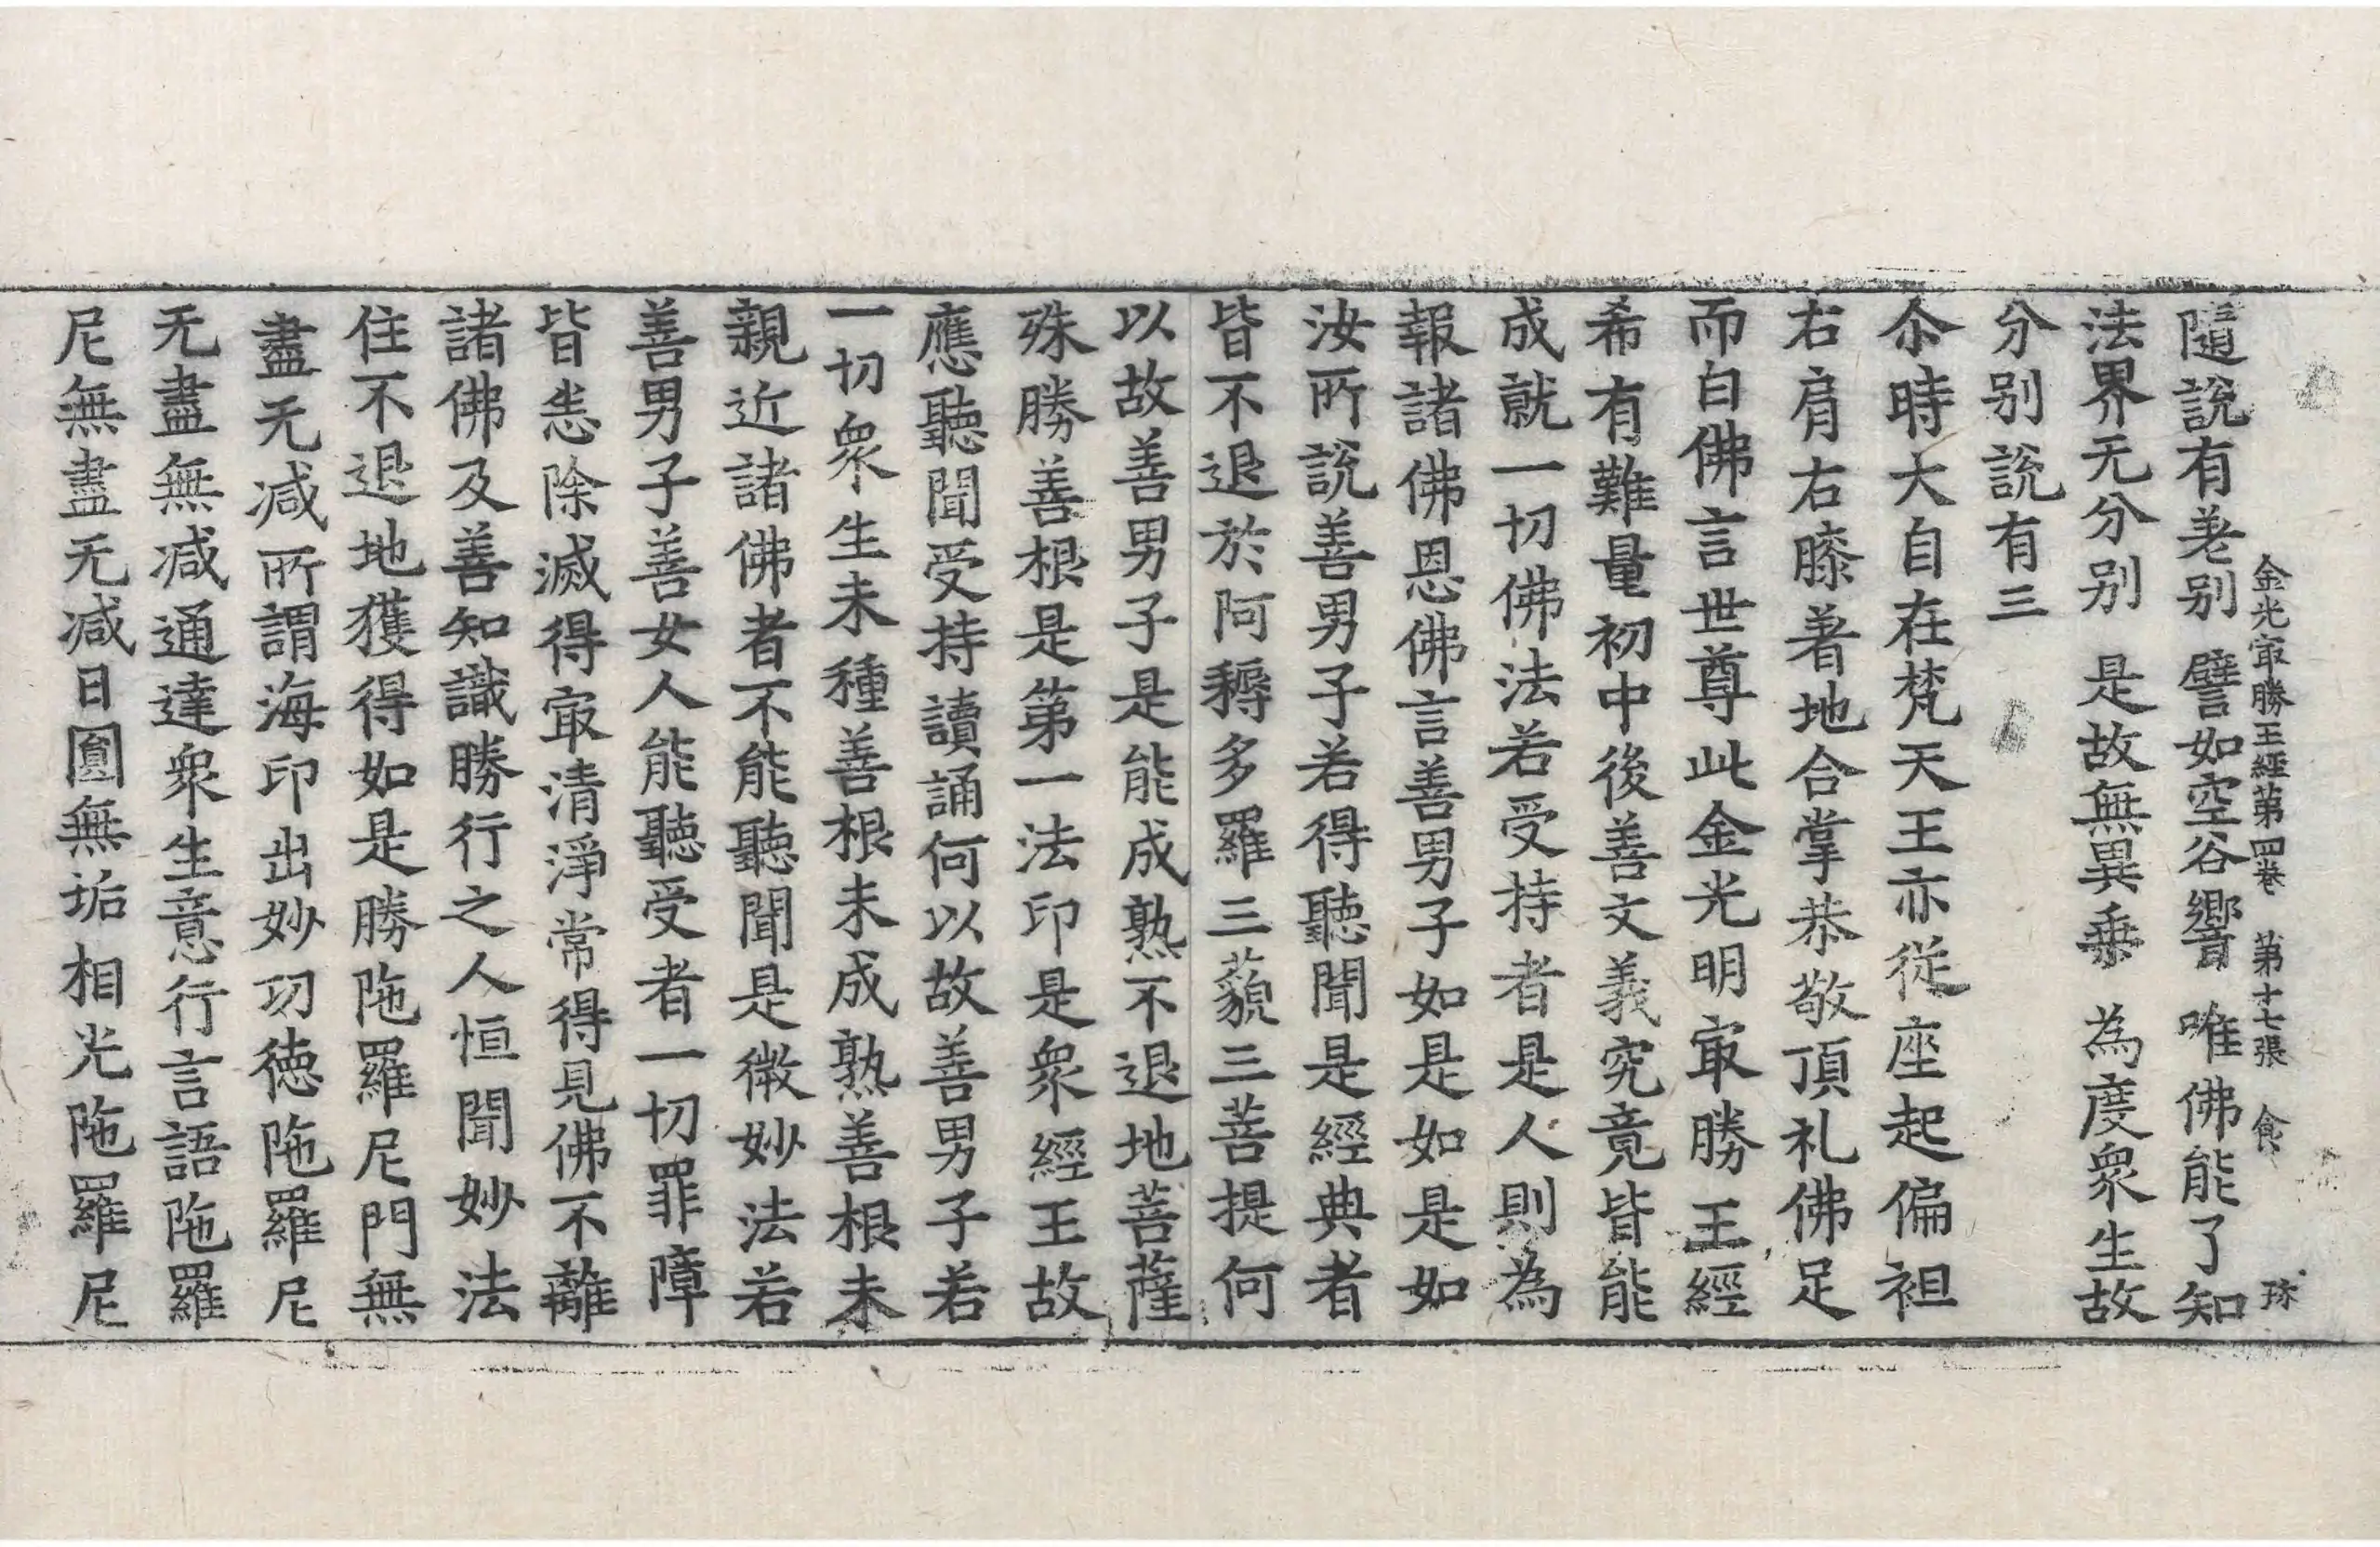 金光㝡勝王經第四卷　第十七張　食　琜
隨說有差别　譬如空谷響　唯佛能了知
法界无分别　是故無異乗　為度衆生故
分别說有三
尒時大自在梵天王亦從座起偏袒
右肩右膝著地合掌恭敬頂礼佛足
而白佛言世尊此金光明㝡勝王經
希有難量初中後善文義究竟皆能
成就一切佛法若受持者是人則為
報諸佛恩佛言善男子如是如是如
汝所說善男子若得聽聞是經典者
皆不退於阿耨多羅三藐三菩提何
以故善男子是能成熟不退地菩薩
殊勝善根是第一法印是衆經王故
應聽聞受持讀誦何以故善男子若
一切衆生未種善根未成熟善根未
親近諸佛者不能聽聞是微妙法若
善男子善女人能聽受者一切罪障
皆悉除滅得㝡清淨常得見佛不離
諸佛及善知識勝行之人恒聞妙法
住不退地獲得如是勝陁羅尼門無
盡无减所謂海印出妙功徳陁羅尼
无盡無减通達衆生意行言語陁羅
尼無盡无减日圓無垢相光陁羅尼